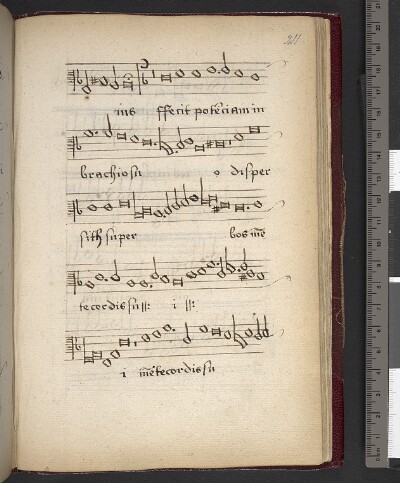 211
ius ffecit potēciam in
brachio su o disper
sith super bos mē
te cordis su ||: i ||:
i mēte cordis su